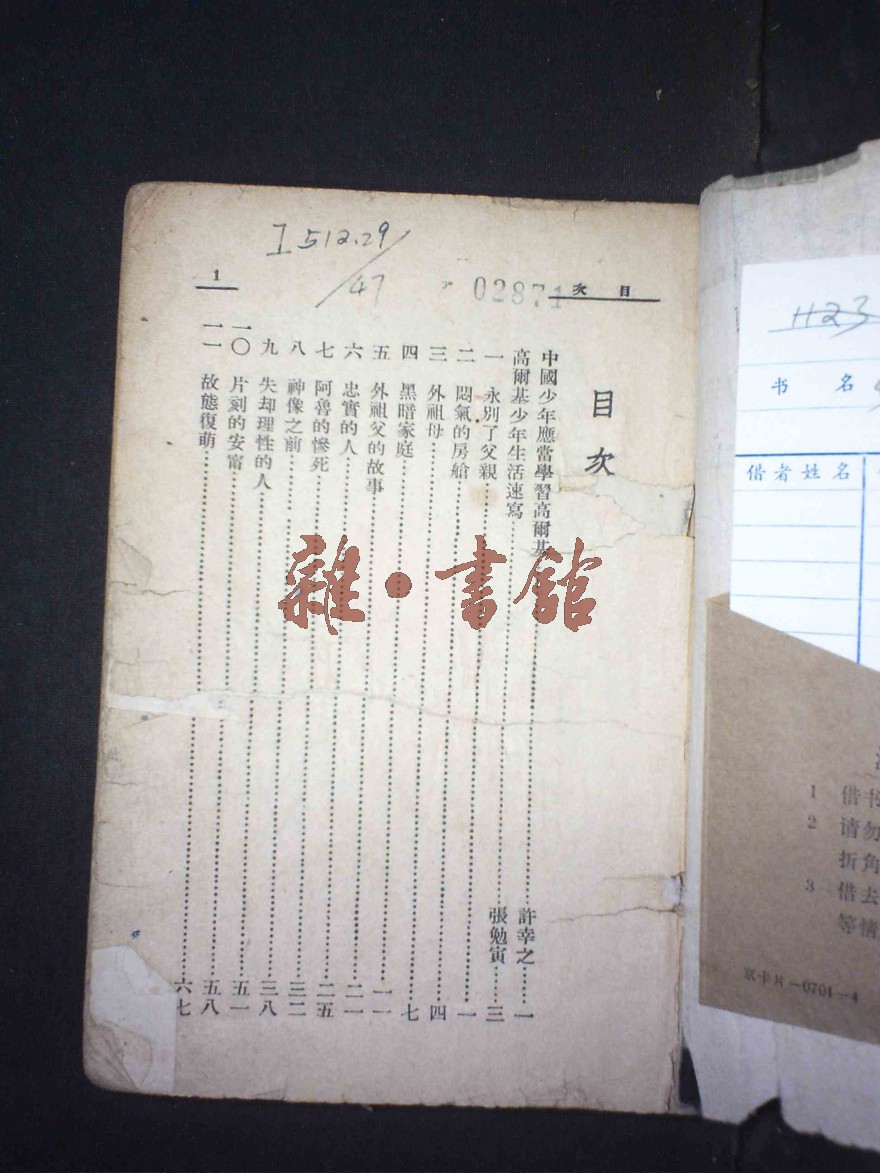 I512.29/47
02871
目次
1
目次
中國少年應當學習高爾基……許幸之……一
高爾基少年生活速寫……張勉寅……三
一 永別了父親……一
二 悶氣的房艙……四
三 外祖母……七
四 黑暗家庭……一一
五 外祖父的故事……二一
六 忠實的人……二五
七 阿魯的慘死……三二
八 神像之前……三八
九 失却理性的人……五一
一〇 片刻的安甯……五八
一一 故態復萌……六七
雜·書館
1123
书名
借者姓名
1 借书
2 请勿
折角
3 借去
等情
京卡片—0701—4